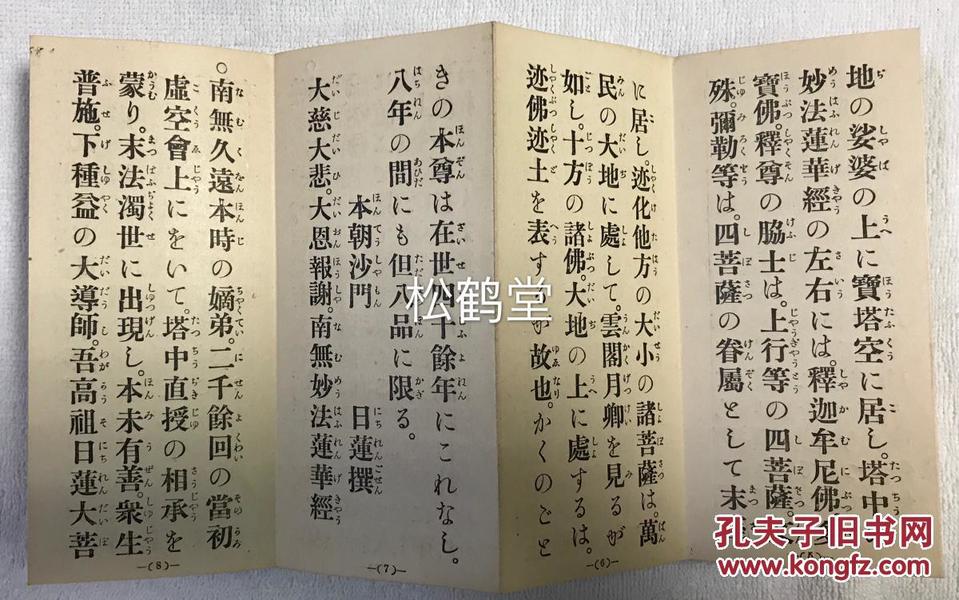 地の娑婆の上に寶塔空に居し。塔中
妙法蓮華經の左右には。釋迦牟尼佛
寶佛。釋尊の脇士は。上行等の四菩薩。
殊。彌勒等は。四菩薩の眷屬として末
に居し。迹化他方の大小の諸菩薩は。萬
民の大地に處して。雲閣月卿を見るが
如し。十方の諸佛。大地の上に處するは。
迹佛迹土を表するが故也。かくのごと
きの本尊は在世四十餘年にこれなし。
八年の間にも但八品に限る。
本朝沙門 日蓮撰
大慈大悲。大恩報謝。南無妙法蓮華經
南無久遠本時の嫡弟。二千餘回の當初
虛空會上にをいて。塔中直授の相承を
蒙り。末法濁世に出現し。本未有善。衆生
普施。下種益の大導師。吾高祖日蓮大菩
(6)
(7)
(8)
松鹤堂
孔夫子旧书网
www.kongfz.com